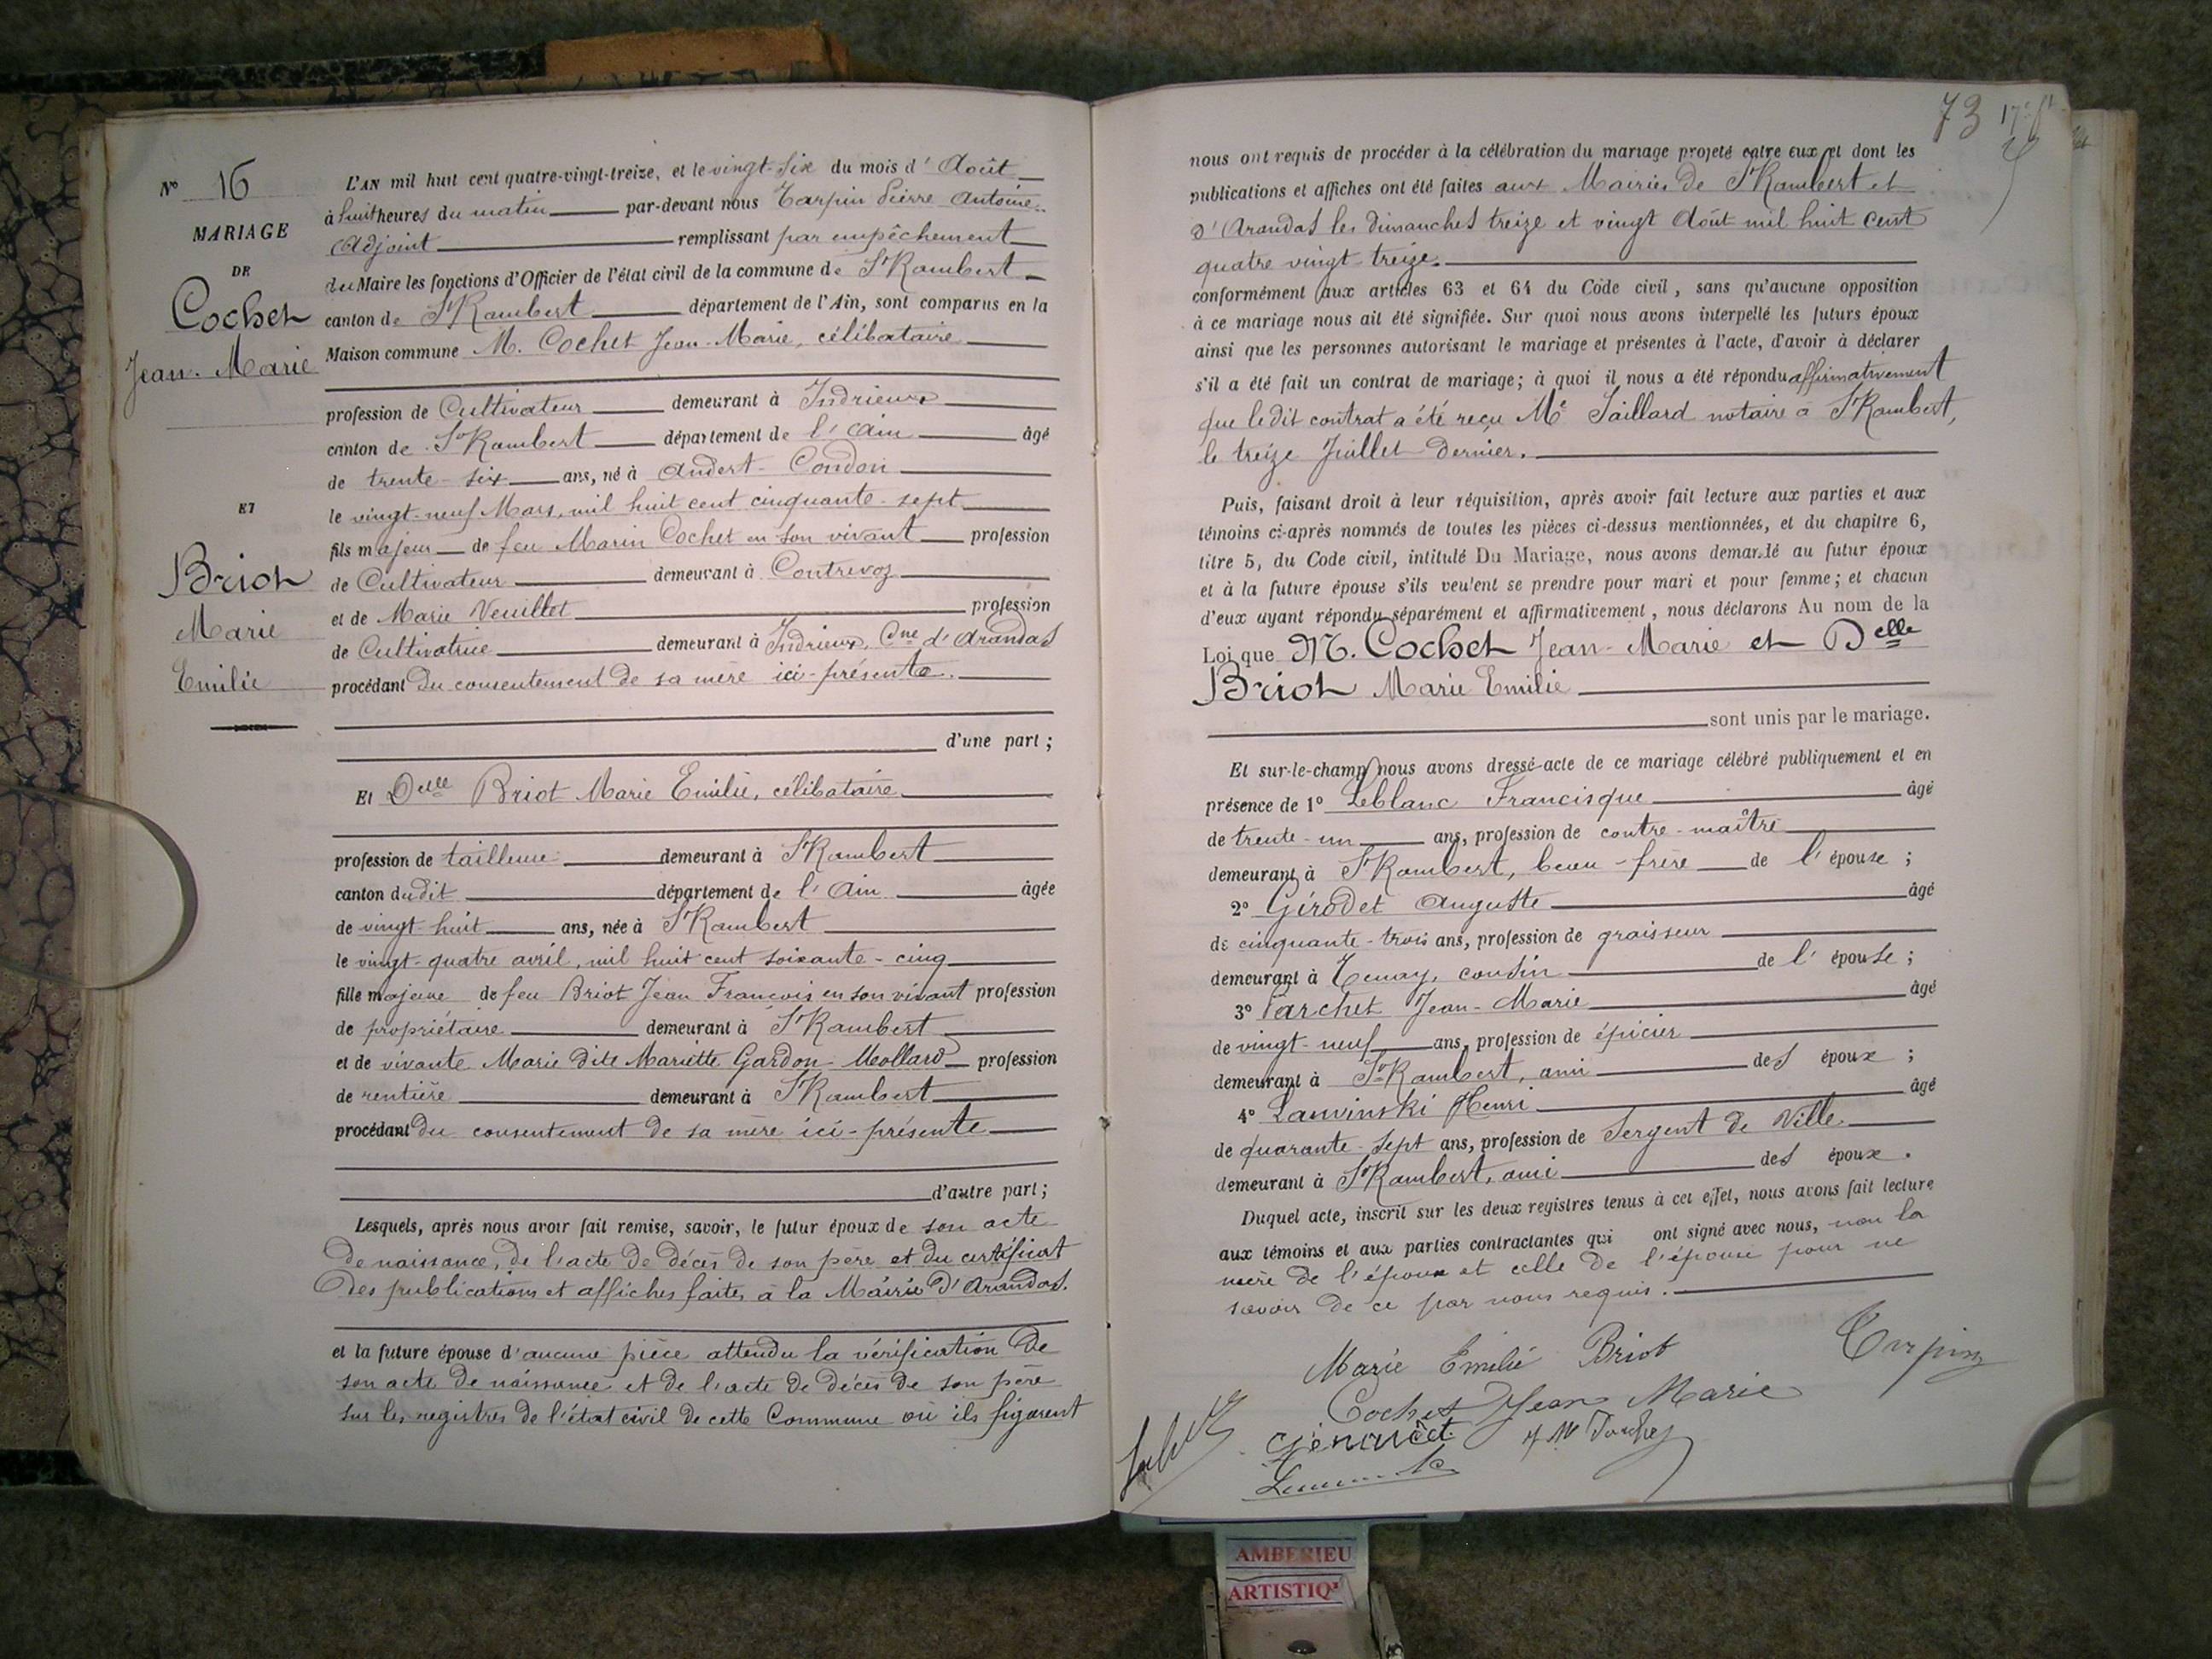 N° 16
MARIAGE
DE
Cochet
Jean-Marie
ET
Briot
Marie
Emilie
L'AN mil huit cent quatre-vingt-treize, et le vingt-six du mois d'Août
à huit heures du matin par-devant nous Tarpin Pierre Antoine
Adjoint remplissant par empêchement
du Maire les fonctions d'Officier de l'état civil de la commune de St Rambert
canton de St Rambert département de l'Ain, sont comparus en la
Maison commune M. Cochet Jean-Marie, célibataire
profession de Cultivateur demeurant à Indrieux
canton de St Rambert département de l'Ain âgé
de trente-six ans, né à Andert-Condon
le vingt-neuf Mars, mil huit cent cinquante-sept
fils majeur de feu Marin Cochet en son vivant profession
de Cultivateur demeurant à Contrevoz
et de Marie Veuillet profession
de Cultivatrice demeurant à Indrieux, Cne d'Arandas
procédant du consentement de sa mère ici-présente.
d'une part ;
Et Delle Briot Marie Emilie, célibataire
profession de tailleuse demeurant à St Rambert
canton dudit département de l'Ain âgée
de vingt-huit ans, née à St Rambert
le vingt-quatre avril, mil huit cent soixante-cinq
fille majeure de feu Briot Jean François en son vivant profession
de propriétaire demeurant à St Rambert
et de vivante Marie dite Mariette Gardon-Mollard profession
de rentière demeurant à St Rambert
procédant du consentement de sa mère ici-présente
d'autre part ;
Lesquels, après nous avoir fait remise, savoir, le futur époux de son acte
de naissance, de l'acte de décès de son père et du certificat
des publications et affiches faites à la Mairie d'Arandas.
et la future épouse d'aucune pièce attendu la vérification de
son acte de naissance et de l'acte de décès de son père
sur les registres de l'état civil de cette Commune où ils figurent
73
nous ont requis de procéder à la célébration du mariage projeté entre eux et dont les
publications et affiches ont été faites aux Mairies de St Rambert et
d'Arandas les dimanches treize et vingt Août mil huit cent
quatre vingt-treize.
conformément aux articles 63 et 64 du Code civil, sans qu'aucune opposition
à ce mariage nous ait été signifiée. Sur quoi nous avons interpellé les futurs époux
ainsi que les personnes autorisant le mariage et présentes à l'acte, d'avoir à déclarer
s'il a été fait un contrat de mariage; à quoi il nous a été répondu affirmativement
que le dit contrat a été reçu Me Jaillard notaire à St Rambert,
le treize Juillet dernier.
Puis, faisant droit à leur réquisition, après avoir fait lecture aux parties et aux
témoins ci-après nommés de toutes les pièces ci-dessus mentionnées, et du chapitre 6,
titre 5, du Code civil, intitulé Du Mariage, nous avons demandé au futur époux
et à la future épouse s'ils veulent se prendre pour mari et pour femme; et chacun
d'eux ayant répondu séparément et affirmativement, nous déclarons Au nom de la
Loi que M. Cochet Jean-Marie et Delle
Briot Marie Emilie
sont unis par le mariage.
Et sur-le-champ nous avons dressé acte de ce mariage célébré publiquement et en
présence de 1° Leblanc Francisque âgé
de trente-un ans, profession de contre-maître
demeurant à St Rambert, beau-frère de l'épouse ;
2° Girodet Auguste âgé
de cinquante-trois ans, profession de graisseur
demeurant à Tenay, cousin de l'épouse ;
3° Parchet Jean-Marie âgé
de vingt-neuf ans, profession de épicier
demeurant à St Rambert, ami des époux ;
4° Lanvinski Henri âgé
de quarante-sept ans, profession de Sergent de Ville
demeurant à St Rambert, ami des époux.
Duquel acte, inscrit sur les deux registres tenus à cet effet, nous avons fait lecture
aux témoins et aux parties contractantes qui ont signé avec nous, non la
mère de l'époux et celle de l'épouse pour ne
savoir de ce par nous requis.
Marie Emilie Briot
Tarpin
Cochet Jean Marie
AMBERIEU
ARTISTIQ